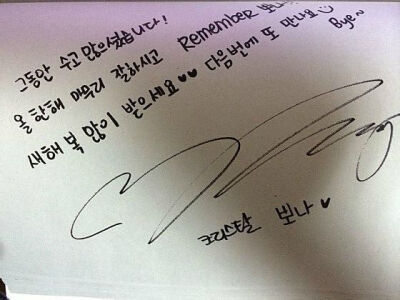 그동안 수고 많으셨습니다!
올 한해 마무리 잘하시고 Remember
새해 복 많이 받으세요♥♥ 다음번에 또 만나요 Bye~
크리스탈 뽀나♥